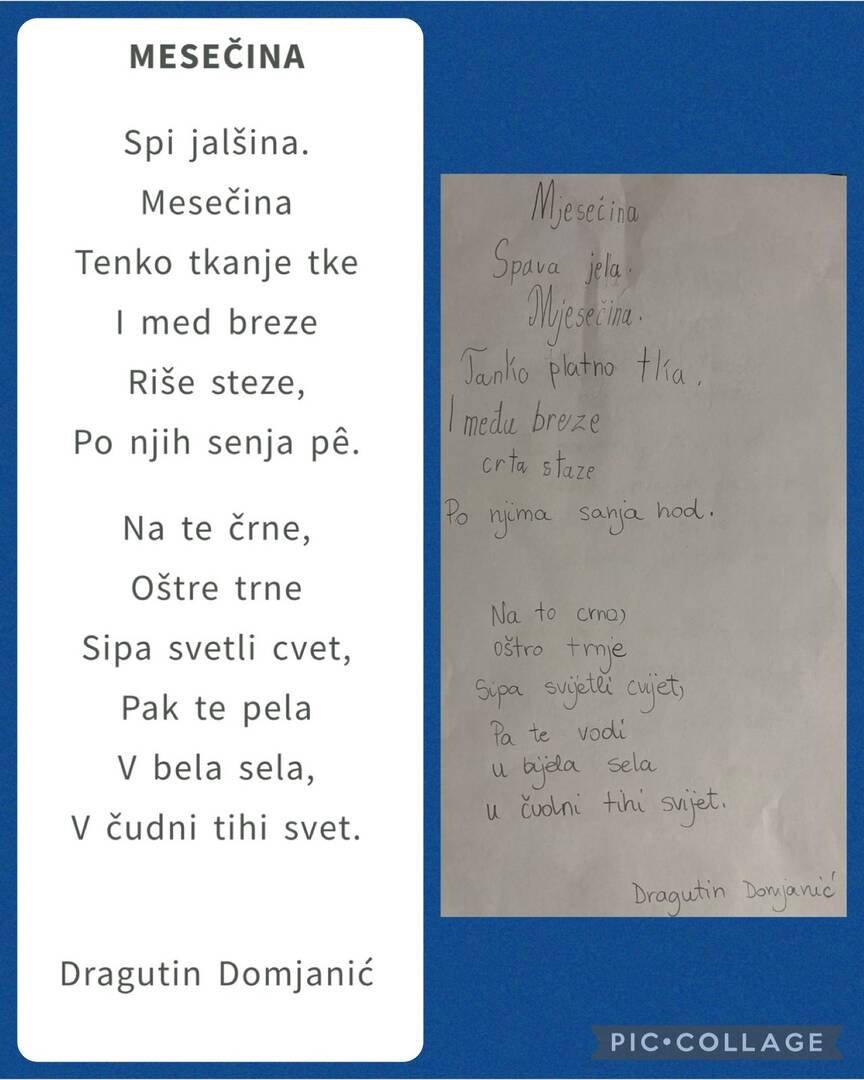 MESEČINA
Spi jalšina.
Mesečina
Tenko tkanje tke
I med breze
Riše steze,
Po njih senja pê.
Na te črne,
Oštre trne
Sipa svetli cvet,
Pak te pela
V bela sela,
V čudni tihi svet.
Dragutin Domjanić
Mjesečina
Spava jela.
Mjesečina.
Tanko platno tka.
I među breze
crta staze
Po njima sanja hod.
Na to crno,
oštro trnje
Sipa svijetli cvijet,
Pa te vodi
u bijela sela
u čudni tihi svijet.
Dragutin Domjanić
PIC•COLLAGE